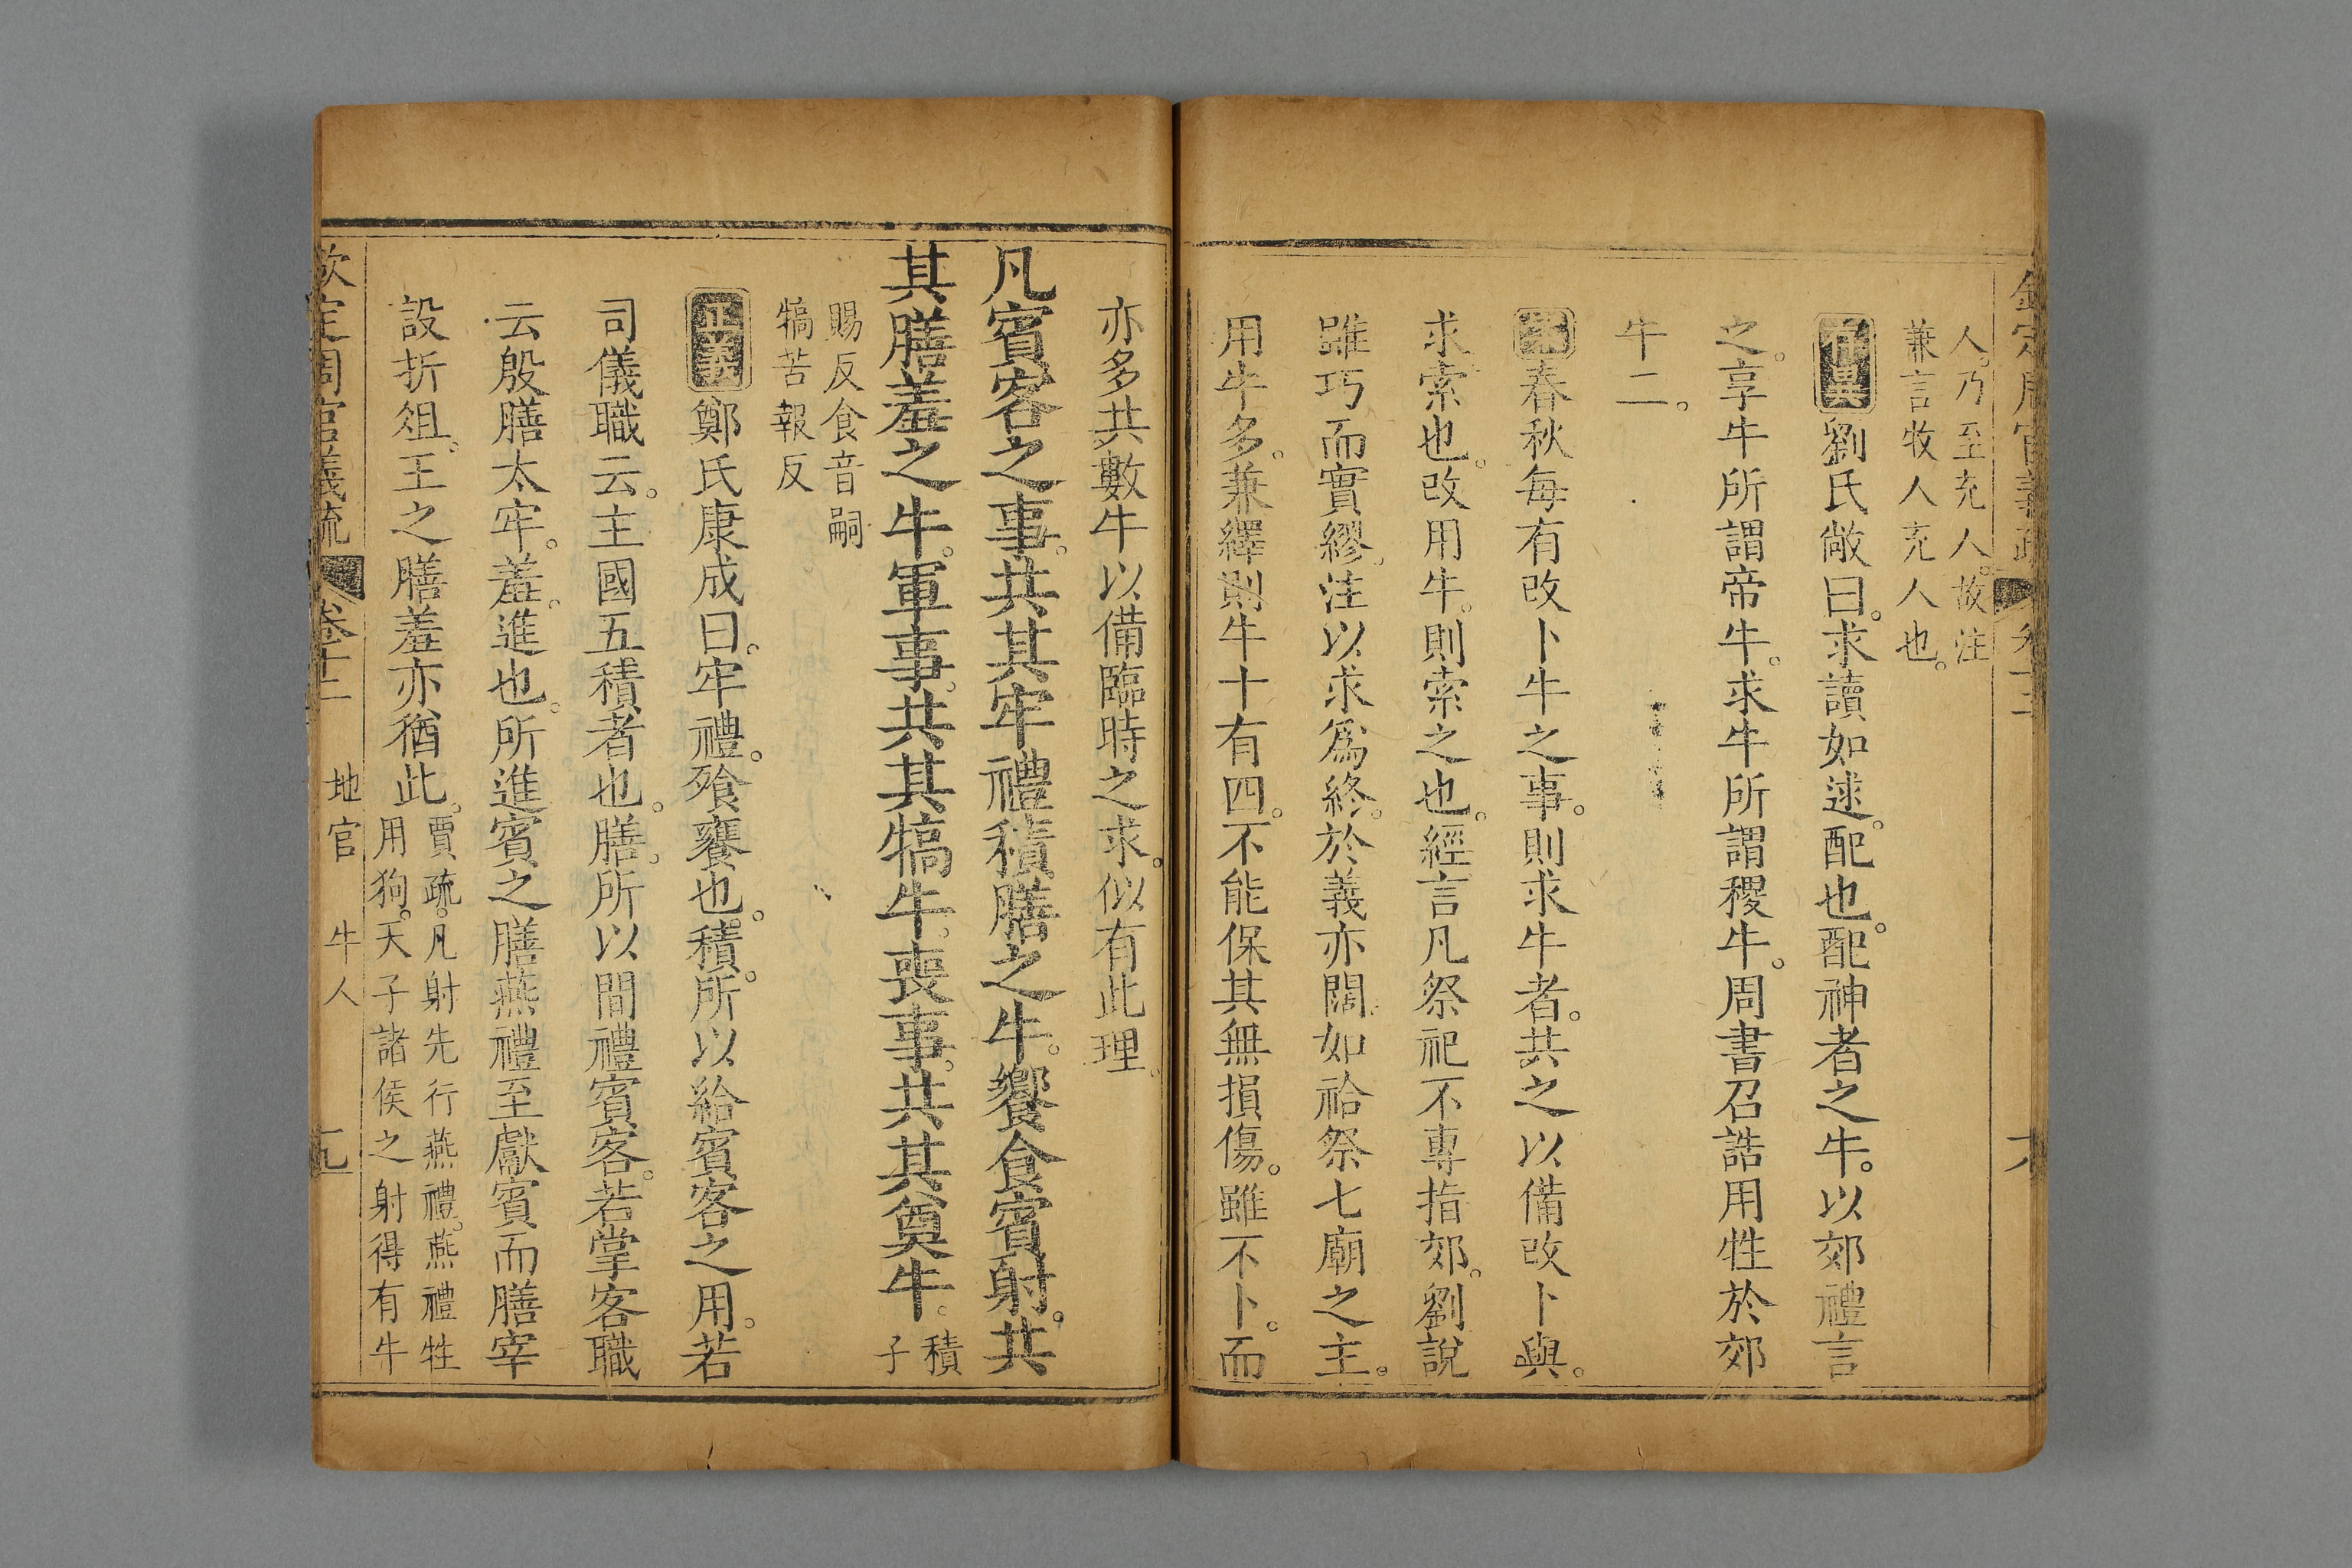 欽定周官義疏 卷十二
人。乃至充人。故注
兼言牧人充人也。
存異劉氏敞曰。求讀如逑。配也。配神者之牛。以郊禮言
之。享牛所謂帝牛。求牛所謂稷牛。周書召誥用牲於郊
牛二。
案春秋每有改卜牛之事。則求牛者。共之以備改卜與。
求索也。改用牛。則索之也。經言凡祭祀不專指郊。劉說
雖巧而實繆。注以求爲終。於義亦闊。如祫祭七廟之主。
用牛多。兼繹則牛十有四。不能保其無損傷。雖不卜。而
亦多共數牛以備臨時之求。似有此理。
凡賓客之事。共其牢禮積膳之牛。饗食賓射。共
其膳羞之牛。軍事。共其犒牛。喪事。共其奠牛。積
子
賜反食音嗣
犒苦報反
正義鄭氏康成曰。牢禮。飱饔也。積。所以給賓客之用。若
司儀職云。主國五積者也。膳。所以間禮賓客。若掌客職
云殷膳太牢。羞。進也。所進賓之膳燕禮至獻賓而膳宰
設折俎。王之膳羞亦猶此。賈疏。凡射先行燕禮。燕禮牲
用狗。天子諸侯之射得有牛
欽定周官義疏 卷十二 地官 牛人